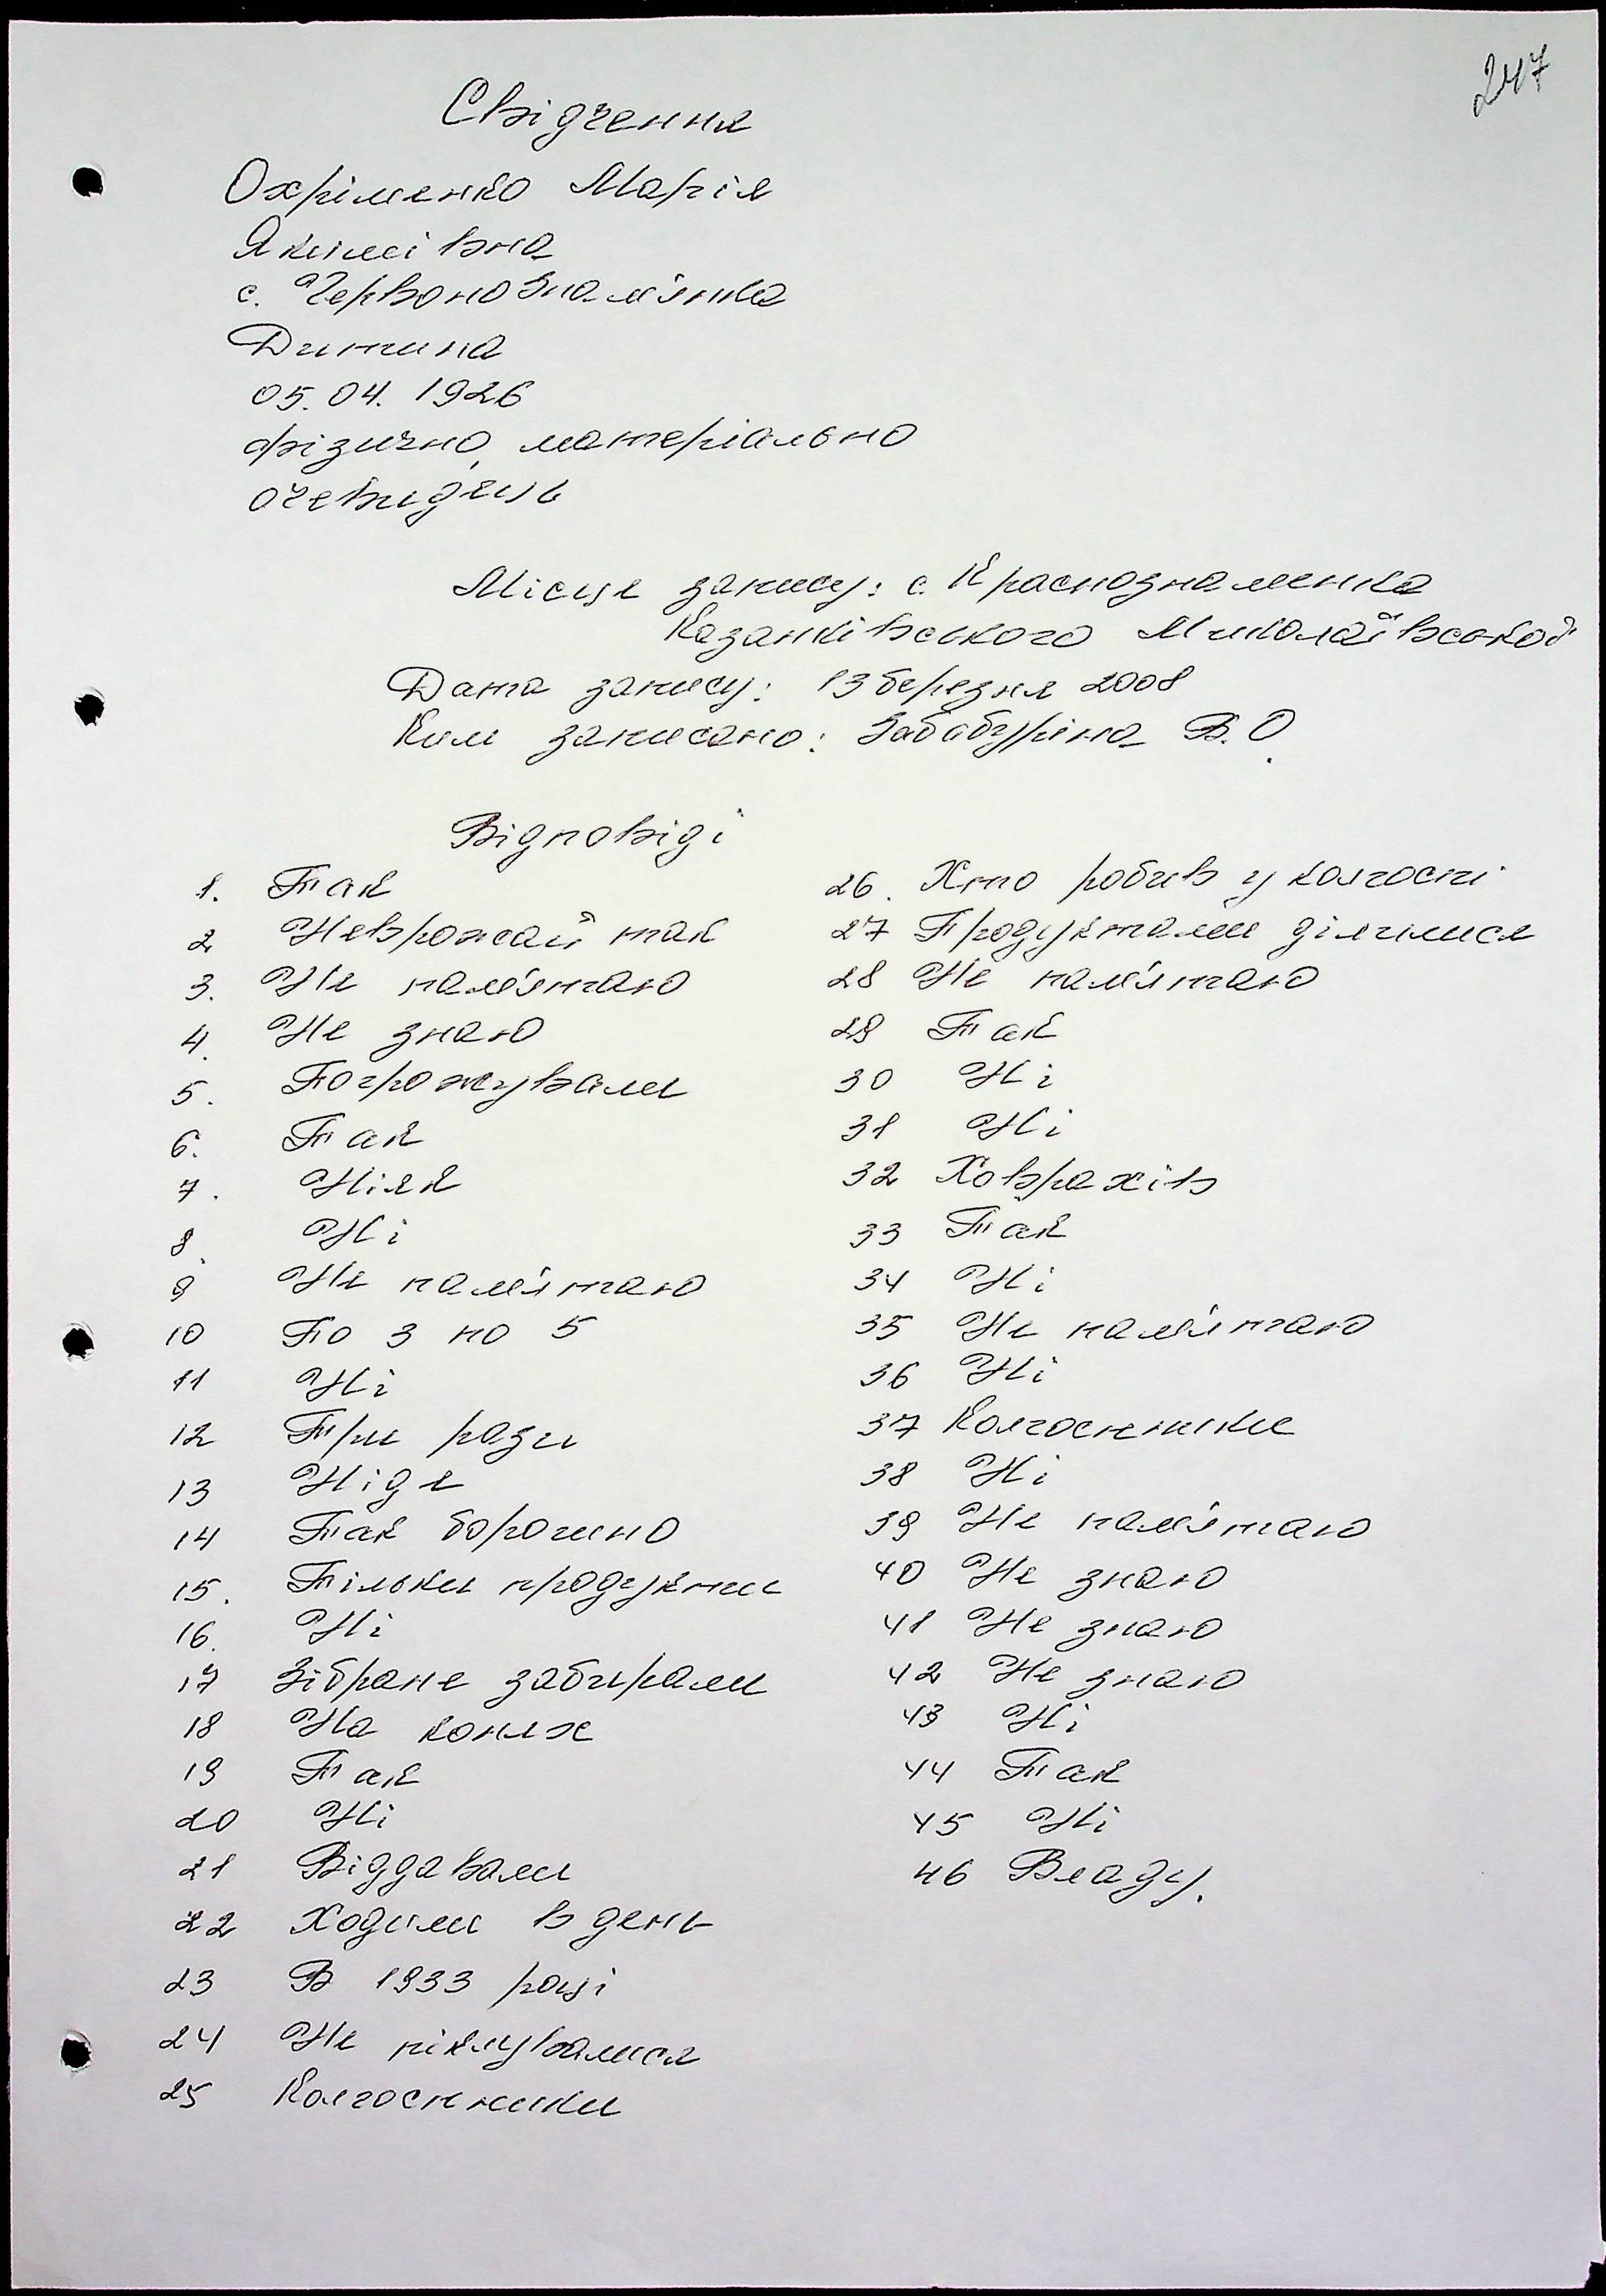 247
Свідчення
Охріменко Марія
Якимівна
с. Червонознам'янка
Дитина
05.04.1926
фізично, матеріально
очевидець
Місце запису: с. Краснознаменка
Казанківського Миколаївської
Дата запису: 13 березня 2008
Ким записано: Забабуріна В.О.
Відповіді
1. Так
2 Неврожай так
3. Не пам'ятаю
4. Не знаю
5. Погрожували
6. Так
7. Ніяк
8. Ні
9 Не пам'ятаю
10 По 3 по 5
11 Ні
12 Три рази
13 Ніде
14 Так борошно
15. Тільки продукти
16. Ні
17 Зібране забирали
18 На конях
19 Так
20 Ні
21 Віддавали
22 Ходили в день
23 В 1933 році
24 Не піклувалися
25 Колгоспники
26. Хто робив у колгоспі
27 Продуктами ділилися
28 Не пам'ятаю
29 Так
30 Ні
31 Ні
32 Ховрахів
33 Так
34 Ні
35 Не пам'ятаю
36 Ні
37 Колгоспники
38 Ні
39 Не пам'ятаю
40 Не знаю
41 Не знаю
42 Не знаю
43 Ні
44 Так
45 Ні
46 Владу.